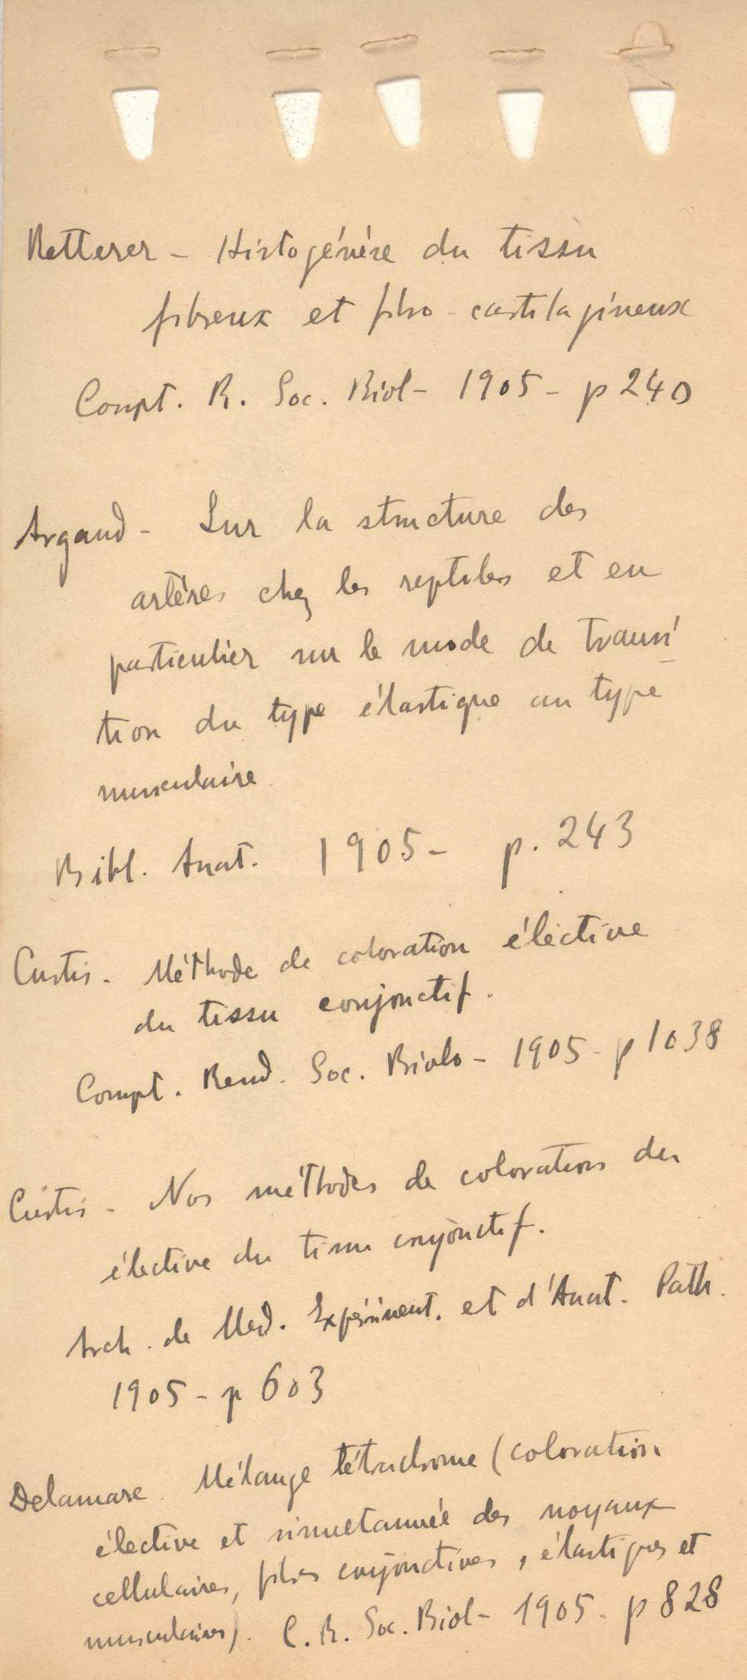 Retterer - Histogénèse du tissu
fibreux et fibro-cartilagineux
Compt. R. Soc. Biol - 1905 - p 240
Argaud - Sur la structure des
artères chez les reptiles et en
particulier sur le mode de transi-
tion du type élastique au type
musculaire
Bibl. Anat. 1905 - p. 243
Curtis - Méthode de coloration élective
du tissu conjonctif.
Compt. Rend. Soc. Biolo - 1905 - p 1038
Curtis - Nos méthodes de colorations du
élective du tissu conjonctif.
Arch. de Med. Expériment. et d'Anat. Path.
1905 - p 603
Delamare Mélange tétrachrome (coloration
élective et simultannée des noyaux
cellulaires, fibres conjonctives, élastiques et
musculaires). C. R. Soc. Biol - 1905 - p 828